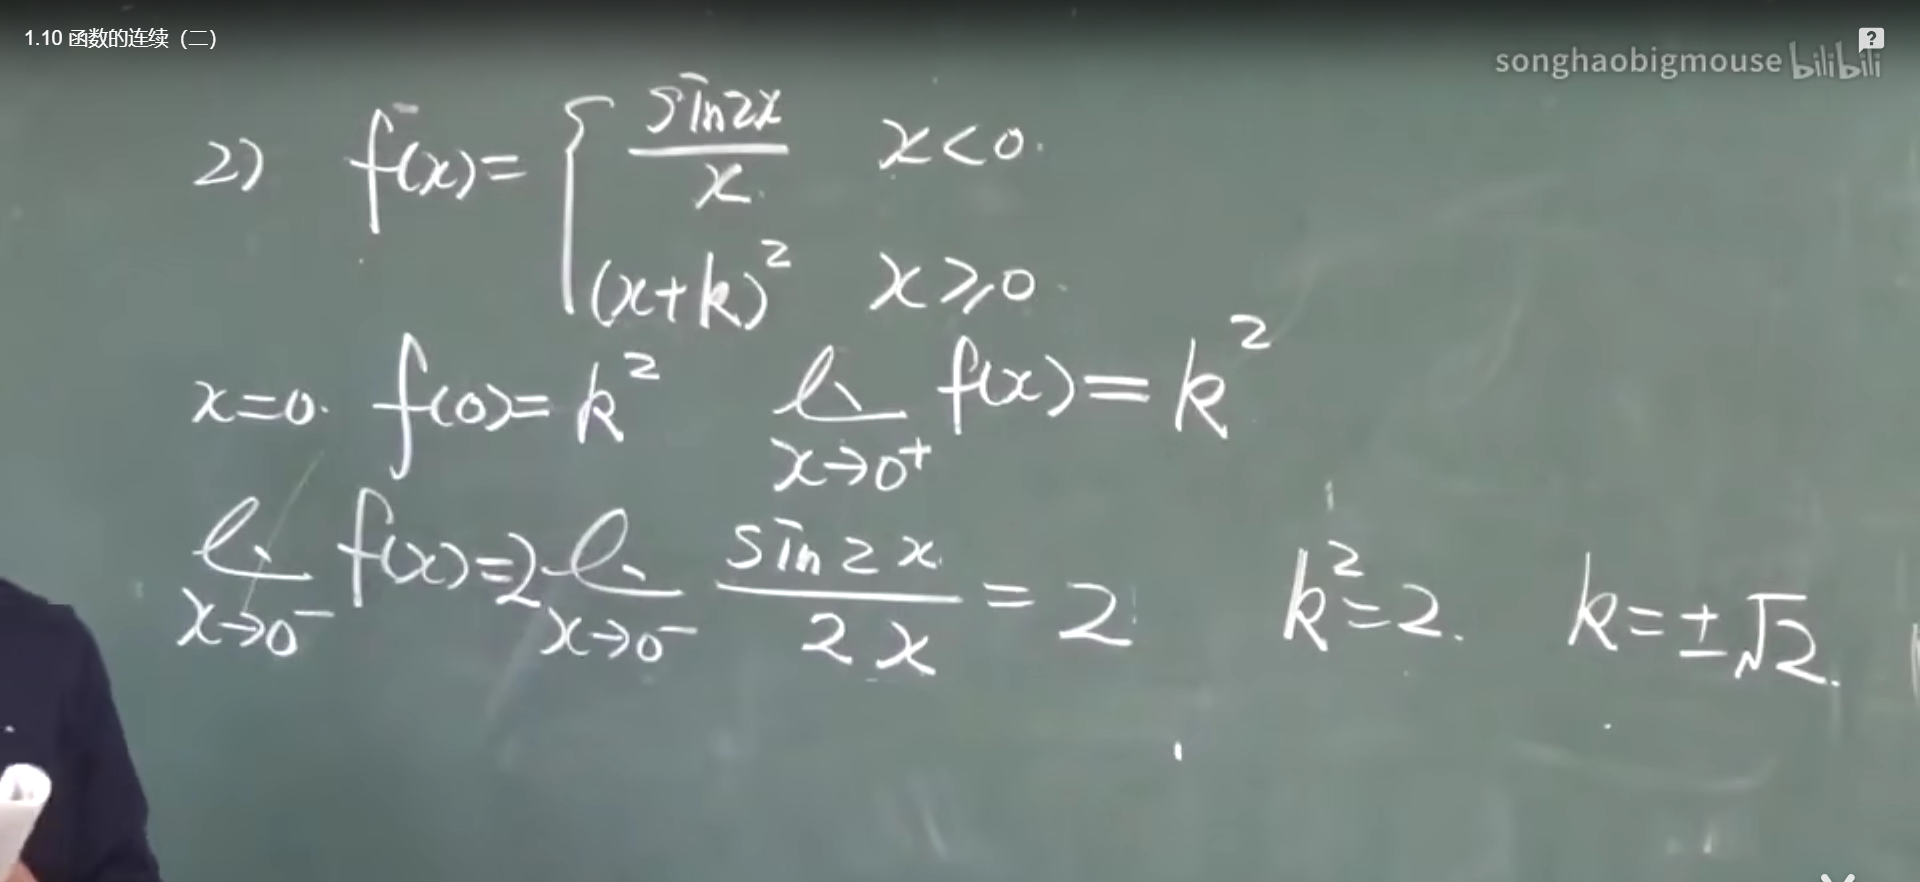 1.10 函数的连续（二）
songhaobigmouse bilibili
2) f(x)= { sin2x / x   x<0.
(x+k)²   x⩾0.
x=0.   f(0)=k²   lim x→0⁺ f(x)=k²
lim x→0⁻ f(x)=2 lim x→0⁻ sin2x / 2x = 2   k²=2.   k=±√2.